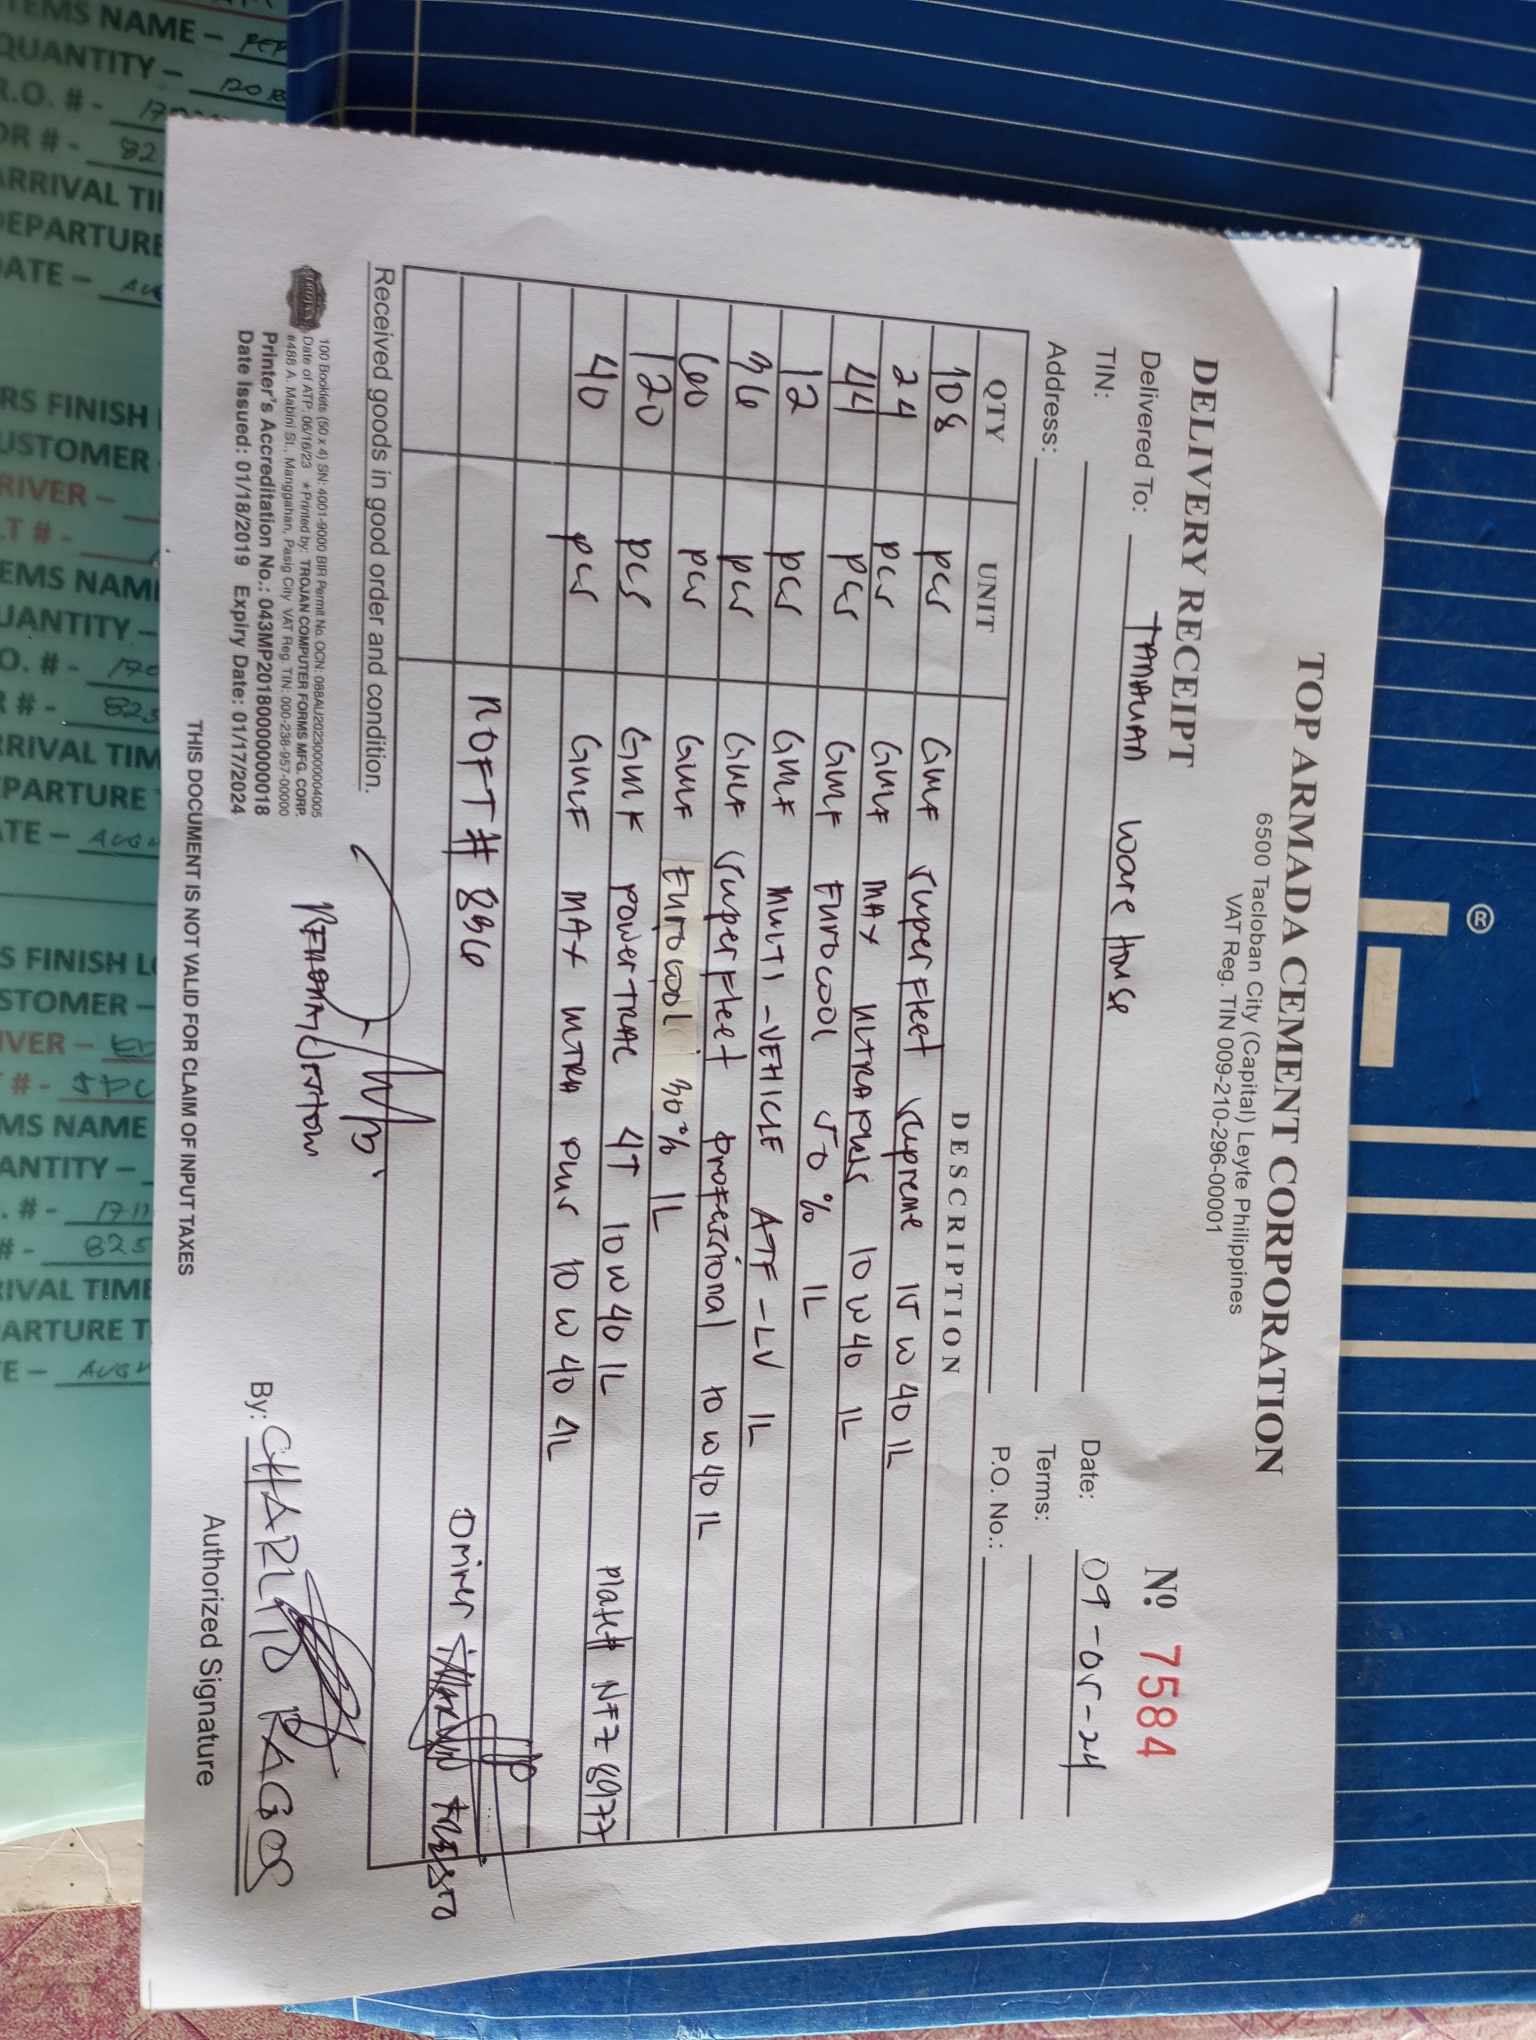 TOP ARMADA CEMENT CORPORATION
6500 Tacloban City (Capital) Leyte Philippines
VAT Reg. TIN 009-210-296-00001
DELIVERY RECEIPT
Nº. 7584
Delivered To: TANAUAN Ware House
Date: 09-05-24
TIN:
Terms:
Address:
P.O. No.:
QTY UNIT DESCRIPTION
108 pcs Gulf Superfleet Supreme 15 W 40 1L
24 pcs Gulf MAX ULTRA PLUS 10 W 40 1L
44 pcs Gulf Eurocool 50 % 1L
12 pcs Gulf MULTI-VEHICLE ATF-LV 1L
36 pcs Gulf Superfleet Professional 10 W 40 1L
60 pcs Gulf Eurocool 30% 1L
120 pcs Gulf POWERTRAC 4T 10 W 40 1L
40 pcs Gulf MAX ULTRA PLUS 10 W 40 4L
Plate#
NOFT# 896
Driver
Received goods in good order and condition.
100 Booklets (50 x 4) SN: 4001-9000 BIR Permit No. OCN: 088AU20230000004005
Date of ATP: 06/16/23 *Printed by: TROJAN COMPUTER FORMS MFG. CORP.
#488 A. Mabini St., Manggahan, Pasig City VAT Reg. TIN: 000-238-957-00000
Printer's Accreditation No.: 043MP20180000000018
Date Issued: 01/18/2019 Expiry Date: 01/17/2024
By: CHARLITO RAGOS
Authorized Signature
THIS DOCUMENT IS NOT VALID FOR CLAIM OF INPUT TAXES
ITEMS NAME –
QUANTITY –
R.O. # -
DR # - 82
ARRIVAL TI
DEPARTURE
DATE –
RS FINISH
USTOMER
RIVER –
LT # -
EMS NAM
UANTITY –
O. # - 170
R # - 823
RRIVAL TIM
PARTURE
TE – AUG
S FINISH L
STOMER –
IVER –
# -
MS NAME
ANTITY –
. # - 1711
# - 825
IVAL TIME
ARTURE T
E – AUG
®